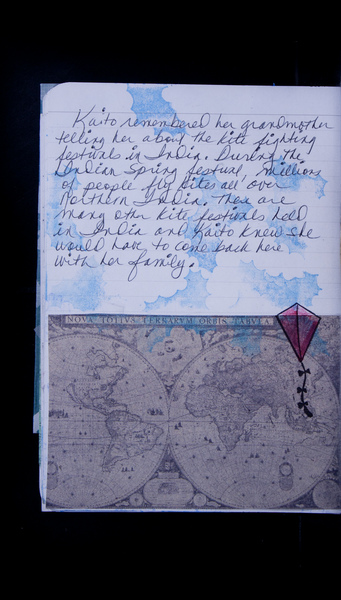 Kaito remembered her grandmother
telling her about the kite fighting
festivals in India. During the
Indian Spring festival, millions
of people fly kites all over
Northern India. There are
many other kite festivals held
in India and Kaito knew she
would have to come back here
with her family.
NOVA TOTIUS TERRARUM ORBIS TABULA